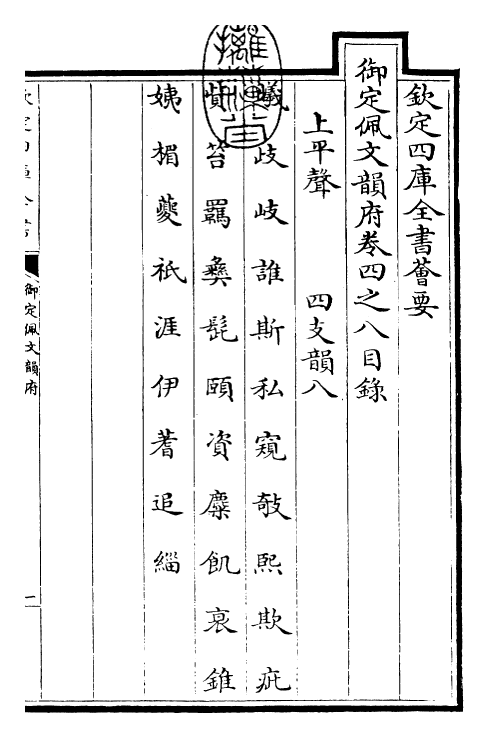 欽定四庫全書薈要
御定佩文韻府卷四之八目錄
上平聲 四支韻八
曦歧岐誰斯私窺欹熙欺疵
貲笞羈彝髭頤資糜飢衰錐
姨楣夔祇涯伊蓍追緇
御定佩文韻府
一